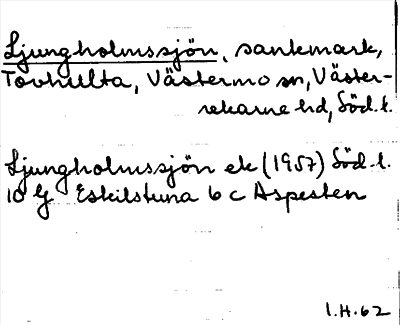 Ljungholmssjön, sankmark,
Tovhulta, Västermo sn, Väster-
rekarne hd, Söd. l.
Ljungholmssjön ek (1957) Söd. l.
10 G Eskilstuna 6 c Aspesten
I.H.62